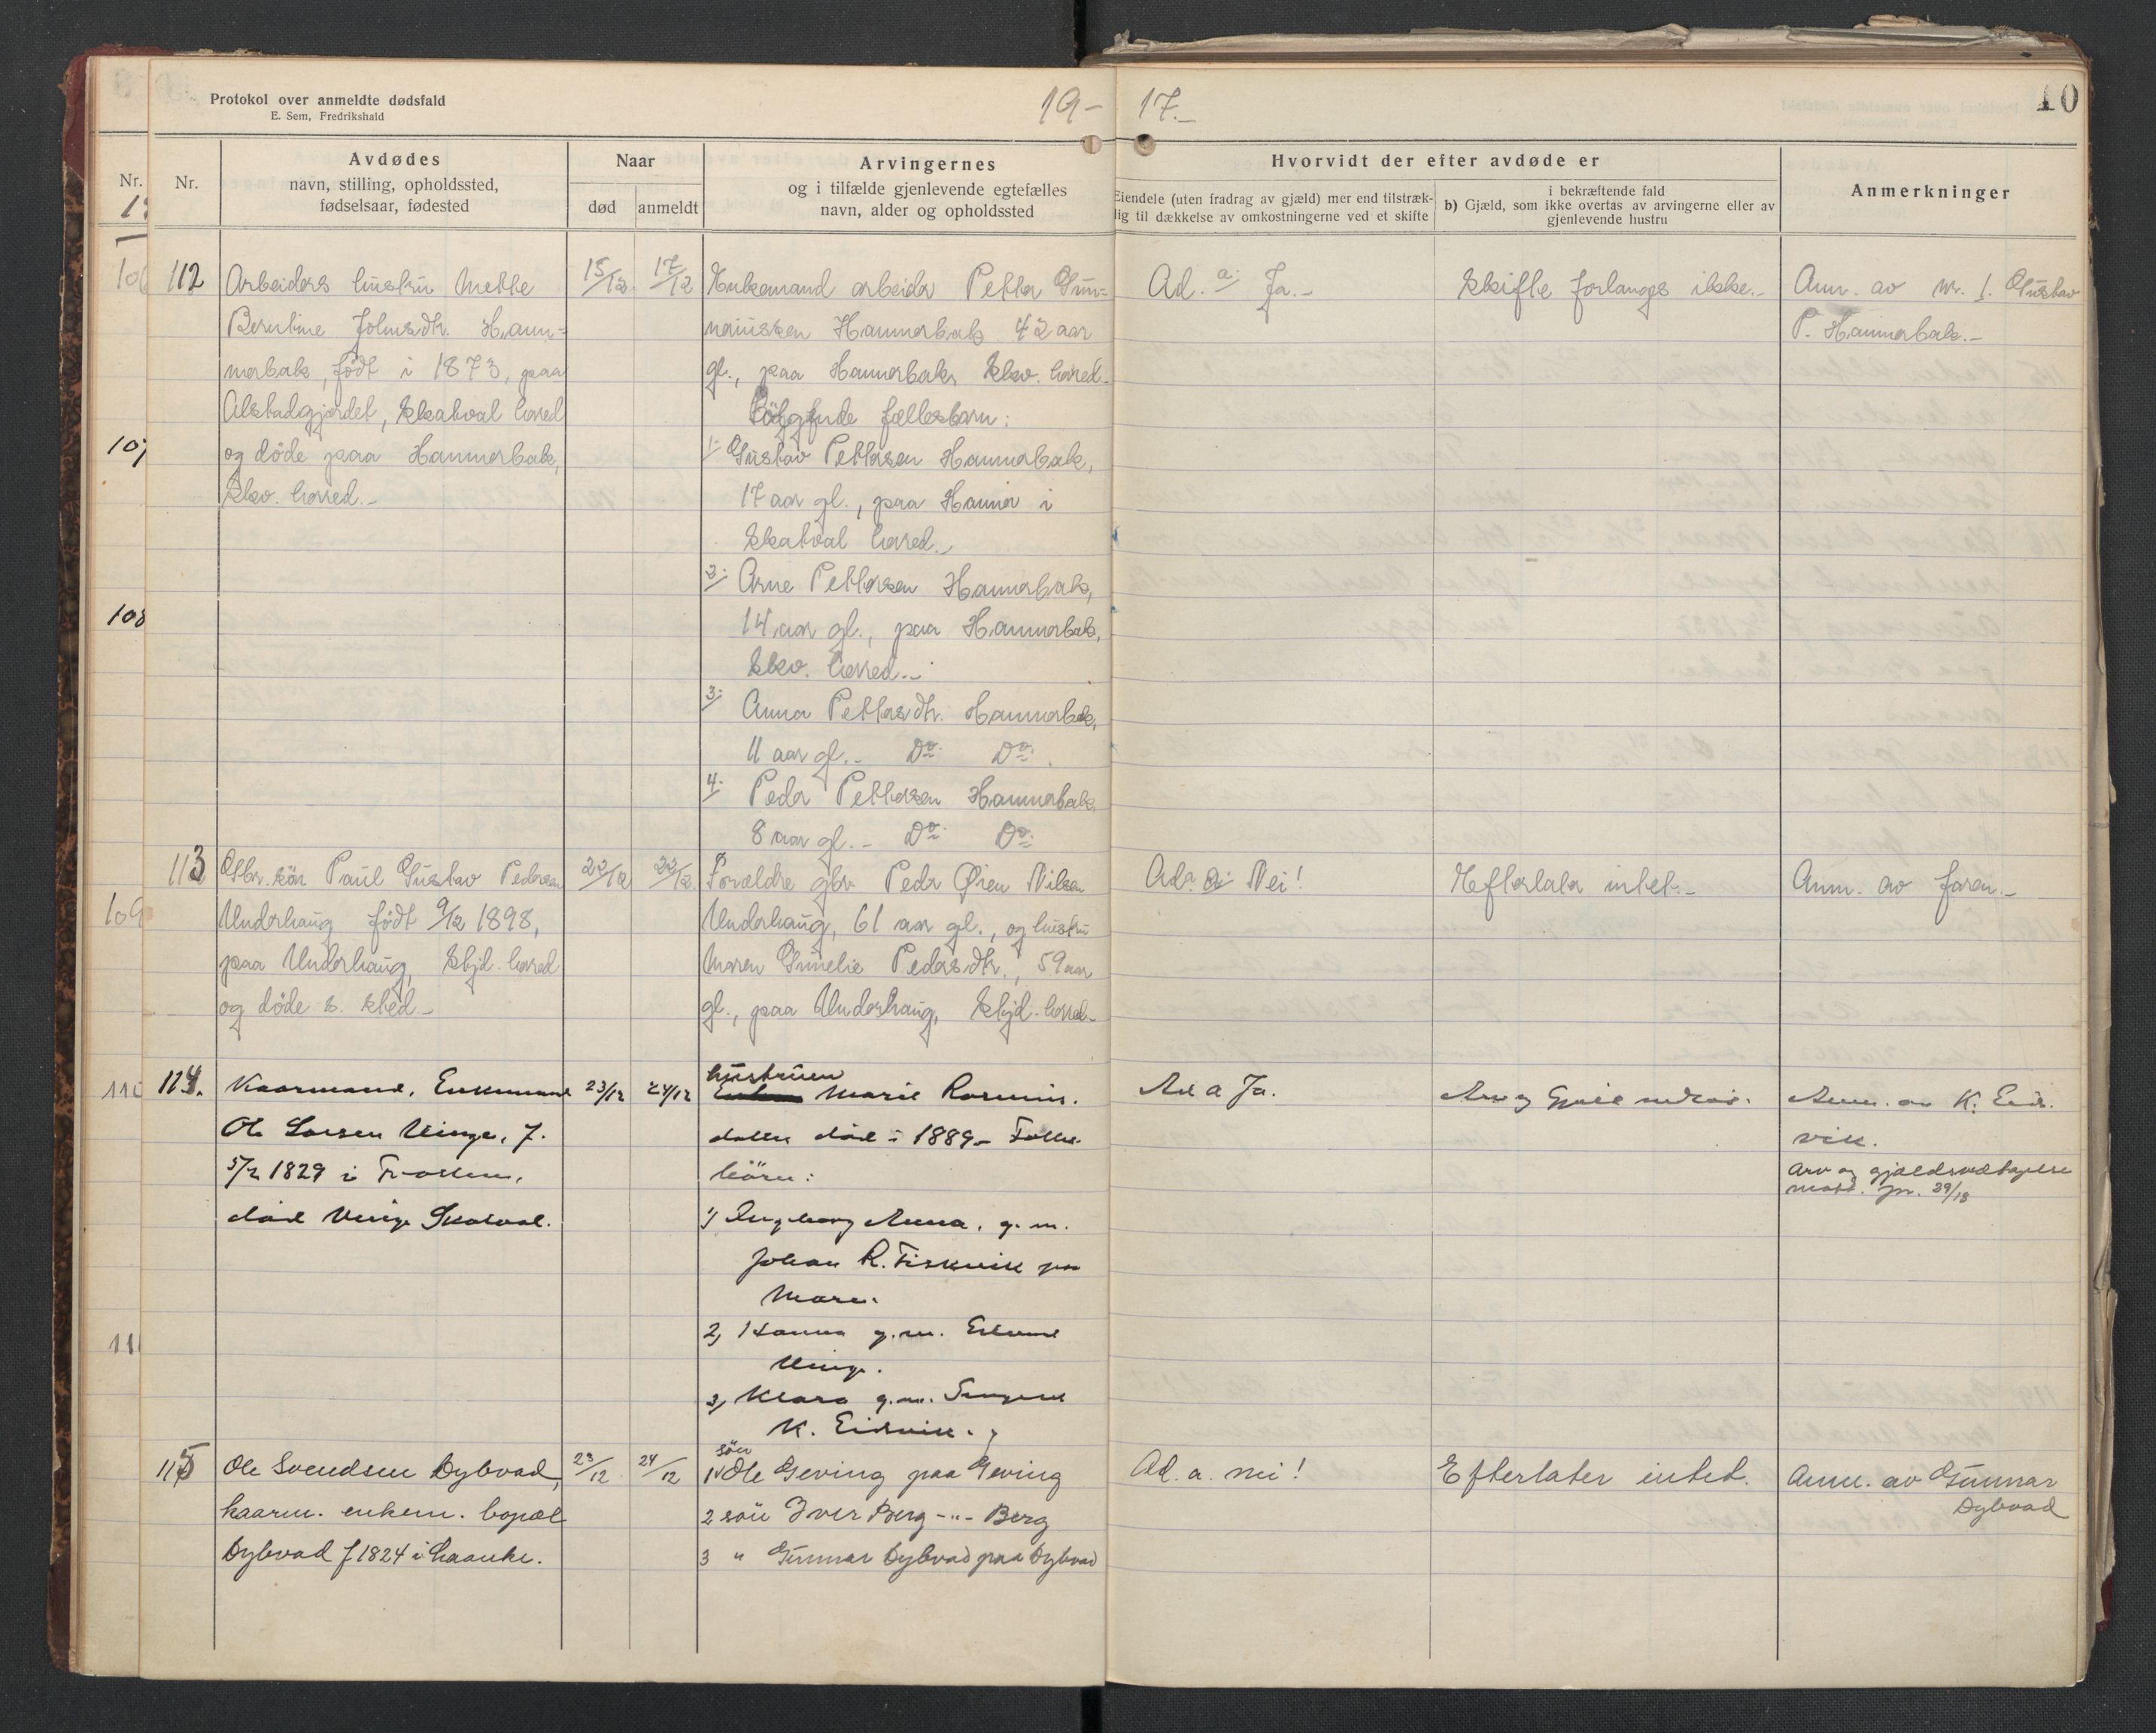 Protokol over anmeldte dødsfald
E. Sem, Fredrikshald
19-
17.-
10
Nr.
Nr.
Avdødes
navn, stilling, opholdssted,
fødselsaar, fødested
Naar
død
anmeldt
Arvingernes
og i tilfælde gjenlevende egtefælles
navn, alder og opholdssted
Hvorvidt der efter avdøde er
Eiendele (uten fradrag av gjæld) mer end tilstræk-
lig til dækkelse av omkostningerne ved et skifte
i bekræftende fald
b) Gjæld, som ikke overtas av arvingerne eller av
gjenlevende hustru
Anmerkninger
112
Arbeiders hustru Mette
Berntine Johnsdtr. Ham-
merbak, født i 1873, paa
Alstadgjerdet, Skatval herred
og døde paa Hammerbak,
Skv. herred.-
15/12
17/12
Enkemand arbeider Petter Gun-
neriussen Hammerbak 42 aar
gl., paa Hammerbak, Skv. herred.
Følgende fællesbarn:
1. Gustav Pettersen Hammerbak,
17 aar gl., paa Hammer i
Skatval herred.-
2. Arne Pettersen Hammerbak,
14 aar gl., paa Hammerbak,
Skv. herred.-
3. Anna Pettersdtr. Hammerbak,
11 aar gl.- Do. Do.
4. Peder Pettersen Hammerbak
8 aar gl.- Do. Do.
Ad. a. Ja.-
Skifte forlanges ikke.-
Anm. av nr. 1. Gustav
P. Hammerbak.-
107
108
113
Gbr. søn Paul Gustav Pedersen
Underhaug født 9/12 1898,
paa Underhaug, Skjd. herred
og døde s. sted.-
22/12
22/12
Forældre gbr. Peder Øien Nilsen
Underhaug, 61 aar gl., og hustru
Maren Gunelie Pedersdtr., 59 aar
gl., paa Underhaug, Skjd. herred.-
Ad. a. Nei!
Efterlater intet.-
Anm. av faren.-
109
110
114.
Kaarmand, Enkemand
Ole Larsen Vinge, f.
5/2 1829 i Frosten,
død Vinge Skatval.
23/12
24/12
hustruen
Marie Rasmus-
datter død i 1889.- Fælles
børn:
1) Ingeborg Anna, g. m.
Johan R. Fiskvik paa
Mare.
2) Hanna g. m. Erlend
Vinge.
3) Klara g. m.
K. Eidsvik.
Ad a Ja.
Arv og Gjæld
Anm. av K. Eids-
vik.
Arv og gjældsvedtagelse
mott. jn. 29/18
111
115
Ole Svendsen Dybvad,
kaarm. enkem. bopæl
Dybvad f 1824 i Laanke.
23/12
24/12
1 søn Ole Geving paa Geving
2 søn Iver Berg -"- Berg
3 " Gunnar Dybvad paa Dybvad
Ad. a. nei!
Efterlater intet.
Anm. av Gunnar
Dybvad